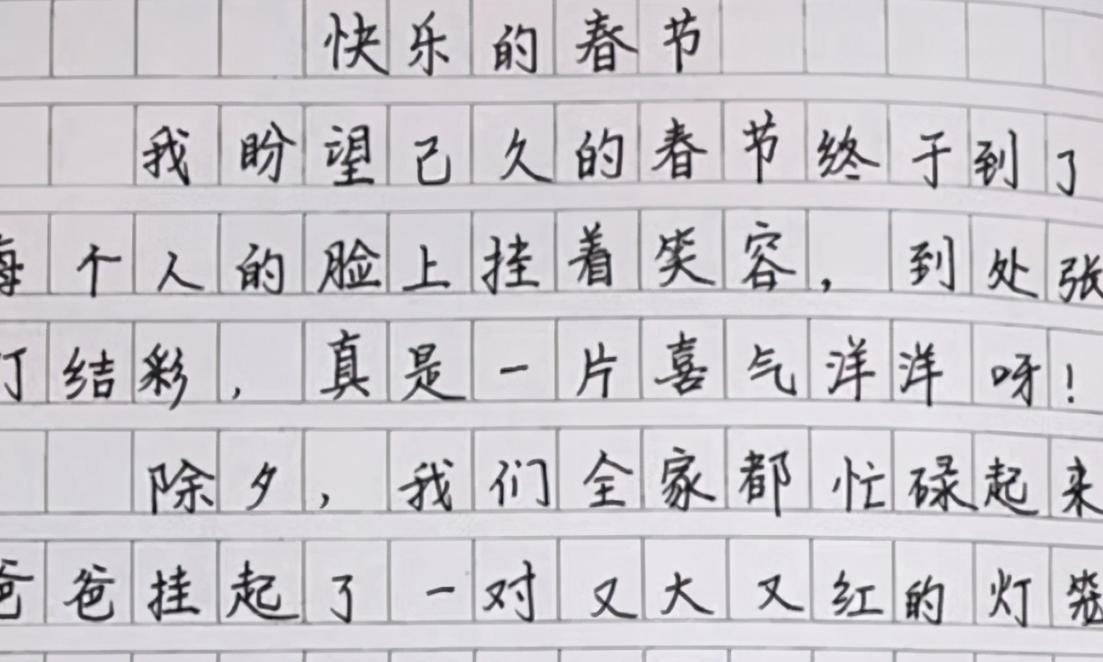 快乐的春节
我盼望已久的春节终于到了
每个人的脸上挂着笑容，到处张
灯结彩，真是一片喜气洋洋呀！
除夕，我们全家都忙碌起来
爸爸挂起了一对又大又红的灯笼